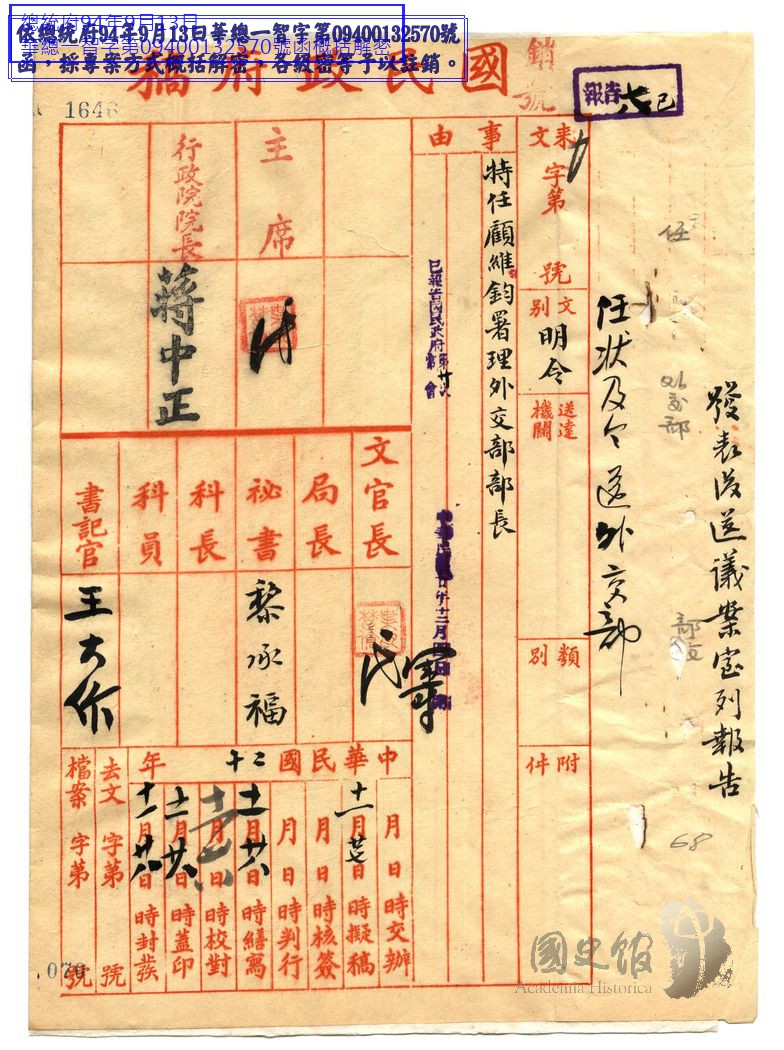 總統府94年9月13日
華總一智字第09400132570號函概括解密
依總統府94年9月13日華總一智字第09400132570號
函,採專案方式概括解密,各級密等予以註銷。
國民政府稿
銷號
報告
六
已
1648
發表後送議案室列報告
任狀及令送外交部
任
外交部
68
來文
字第
號
文別
明令
送達機關
類別
附件
事由
特任顧維鈞署理外交部部長
已報告國民政府第廿次常會
主席
行政院院長
蔣中正
文官長
局長
祕書
黎承福
科長
科員
書記官
王大作
中華民國二十年
月日時交辦
十一月廿七日時擬稿
月日時核簽
月日時判行
十一月廿六日時繕寫
十一月廿六日時校對
十一月廿六日時蓋印
十一月廿八日時封發
去文字第號
檔案字第號
070
國史館
Academia Historica